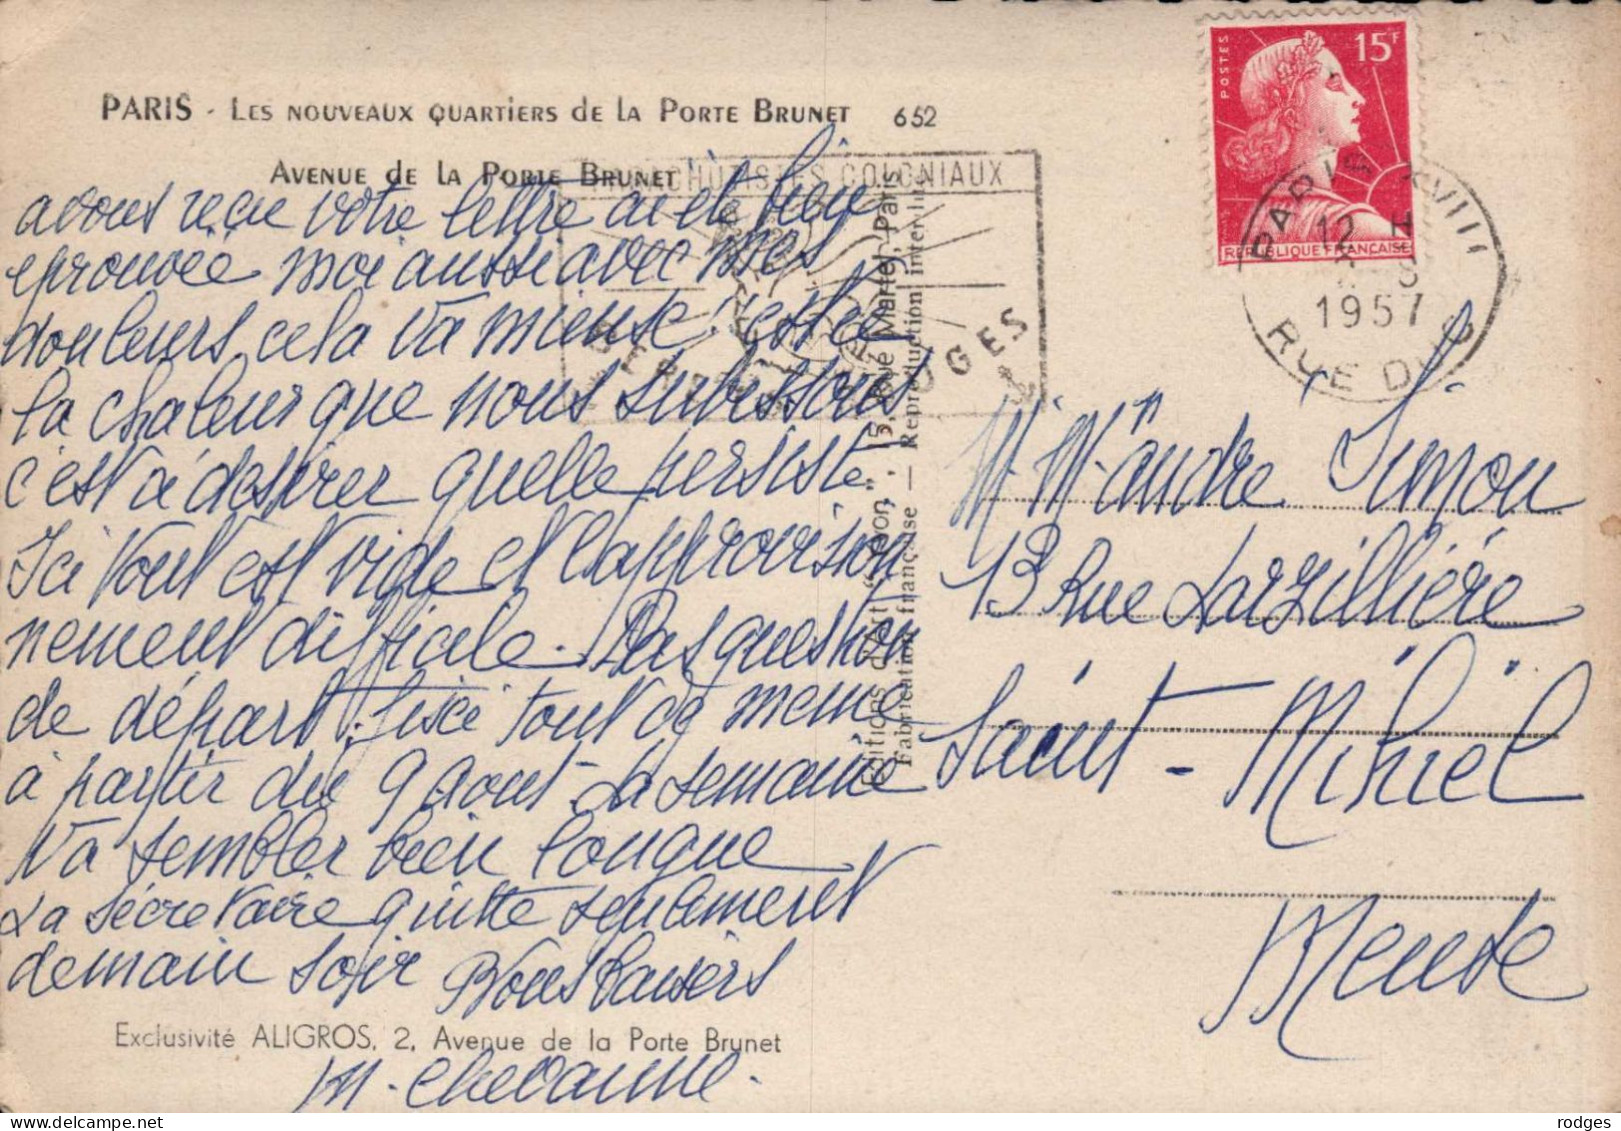 PARIS - Les nouveaux quartiers de la Porte Brunet 652
Avenue de la Porte Brunet
avons reçu votre lettre ai été bien
eprouvée moi aussi avec mes
douleurs, cela va mieux c'est
la chaleur que nous subissons
c'est à désirer quelle persiste.
Ici tout est vide et l'approvision
nement difficile. Pas question
de départ. tout de même
à partir du 9 aout. La semaine
va sembler bien longue
La sécretaire quitte seulement
demain soir Bons baisers
Exclusivité ALIGROS, 2, Avenue de la Porte Brunet
M. Chevanne.
Editions d'Art "Yvon", 15, Rue Martel, Paris
Fabrication française — Reproduction interdite
PARACHUTISTES COLONIAUX
BERETS ROUGES
POSTES
15F
REPUBLIQUE FRANÇAISE
PARIS XVIII
12 H
1957
RUE DUC
M. Mme André Simon
13 Rue Larzillière
Saint-Mihiel
Meuse
rodges
delcampe.net